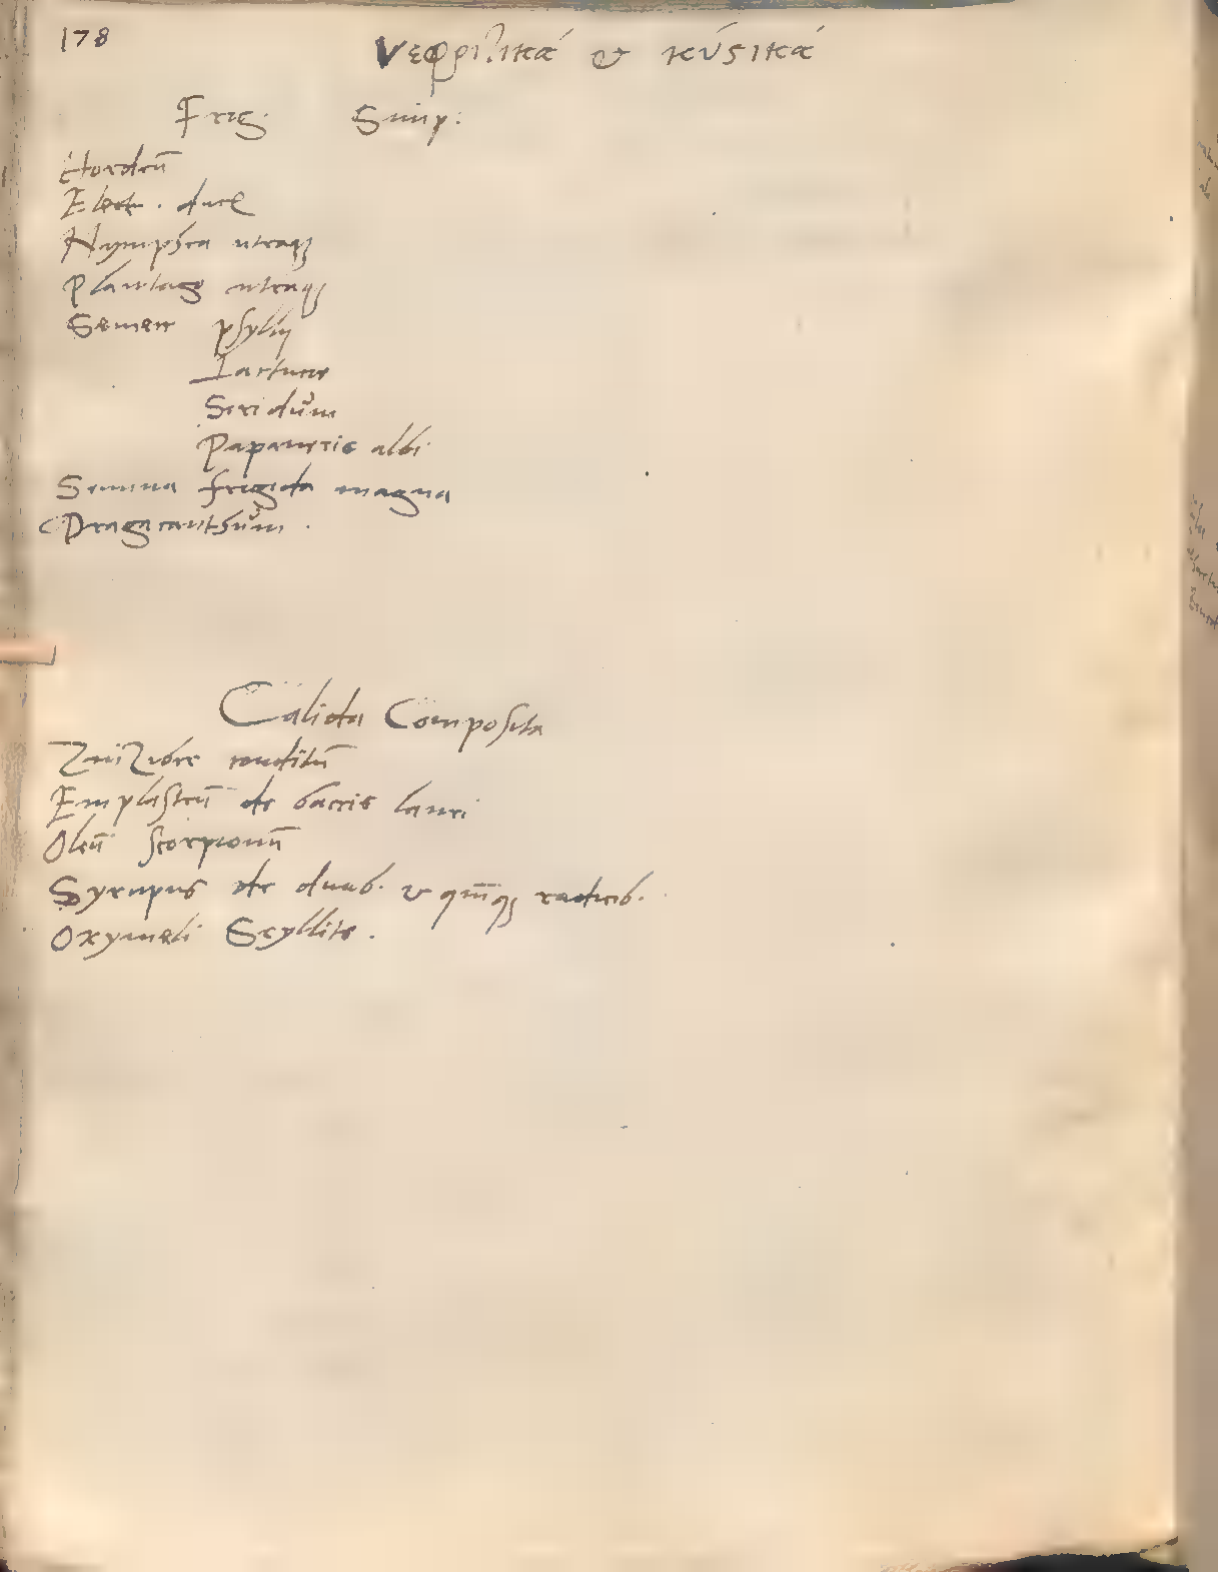 178
νεφριτικά & κύσικά
Frig. Simp:
Hordeū
Elect. dulce
Nymphea utraq;
Plantago utraq;
Semen psylij
Lactuce
Seridum
Papaveris albi
Semina frigida magna
Dragacanthum.
Calida Composita
ZniZibere conditū
Emplastrū de baccis lauri
Oleū scorpionū
Syrupus de duab. & quīq; radicib.
Oxymeli Scyllite.